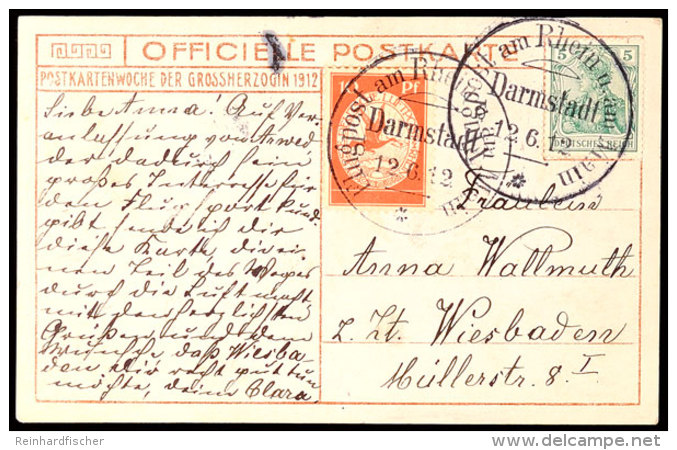 OFFICIELLE POSTKARTE
POSTKARTENWOCHE DER GROSSHERZOGIN 1912
Liebe Anna! Auf Ver-
anlassung von
der dadurch sein
großes Interesse für
den Flugsport kund-
gibt sende ich dir
diese Karte, die ei-
nen Teil des Weges
durch die Luft macht
mit den herzlichsten
Grüßen und dem
Wunsche, daß Wiesba-
den Dir recht gut tun
möchte, deine Clara.
Flugpost am Rhein u. am Main
Darmstadt
12.6.12
Flugpost am Rhein u. am Main
Darmstadt
12.6.12
5 5
DEUTSCHES REICH
Fräulein
Anna Wallmuth
z. Zt. Wiesbaden
Müllerstr. 8 I
Reinhardfischer
delcampe.net